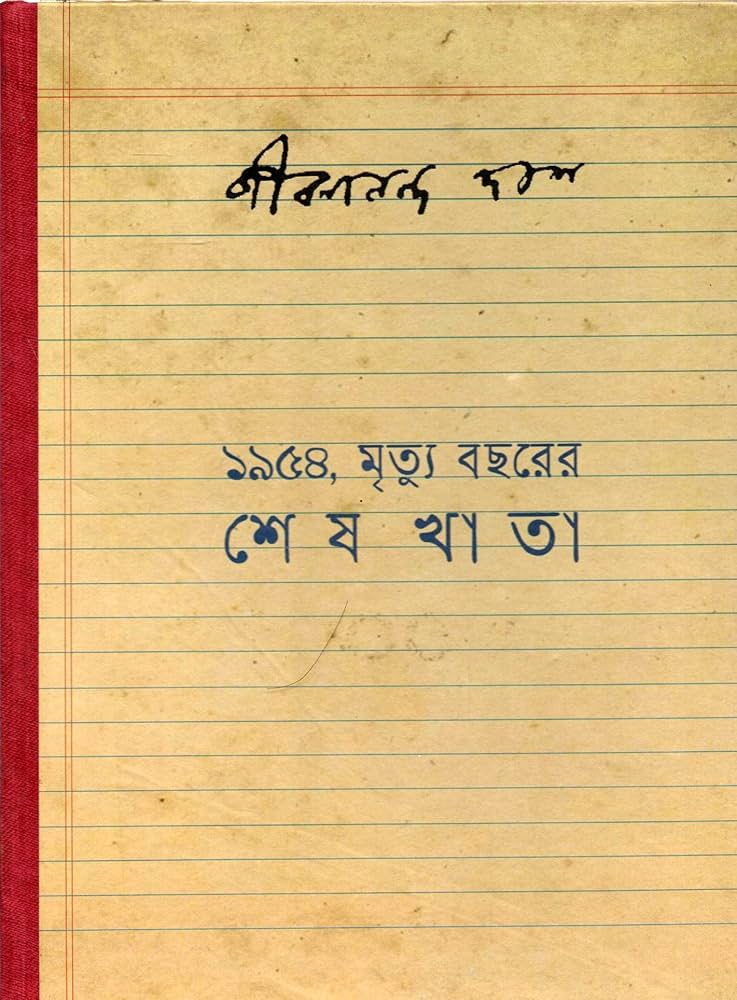 জীবনানন্দ দাশ
১৯৫৪, মৃত্যু বছরের
শেষ খাতা